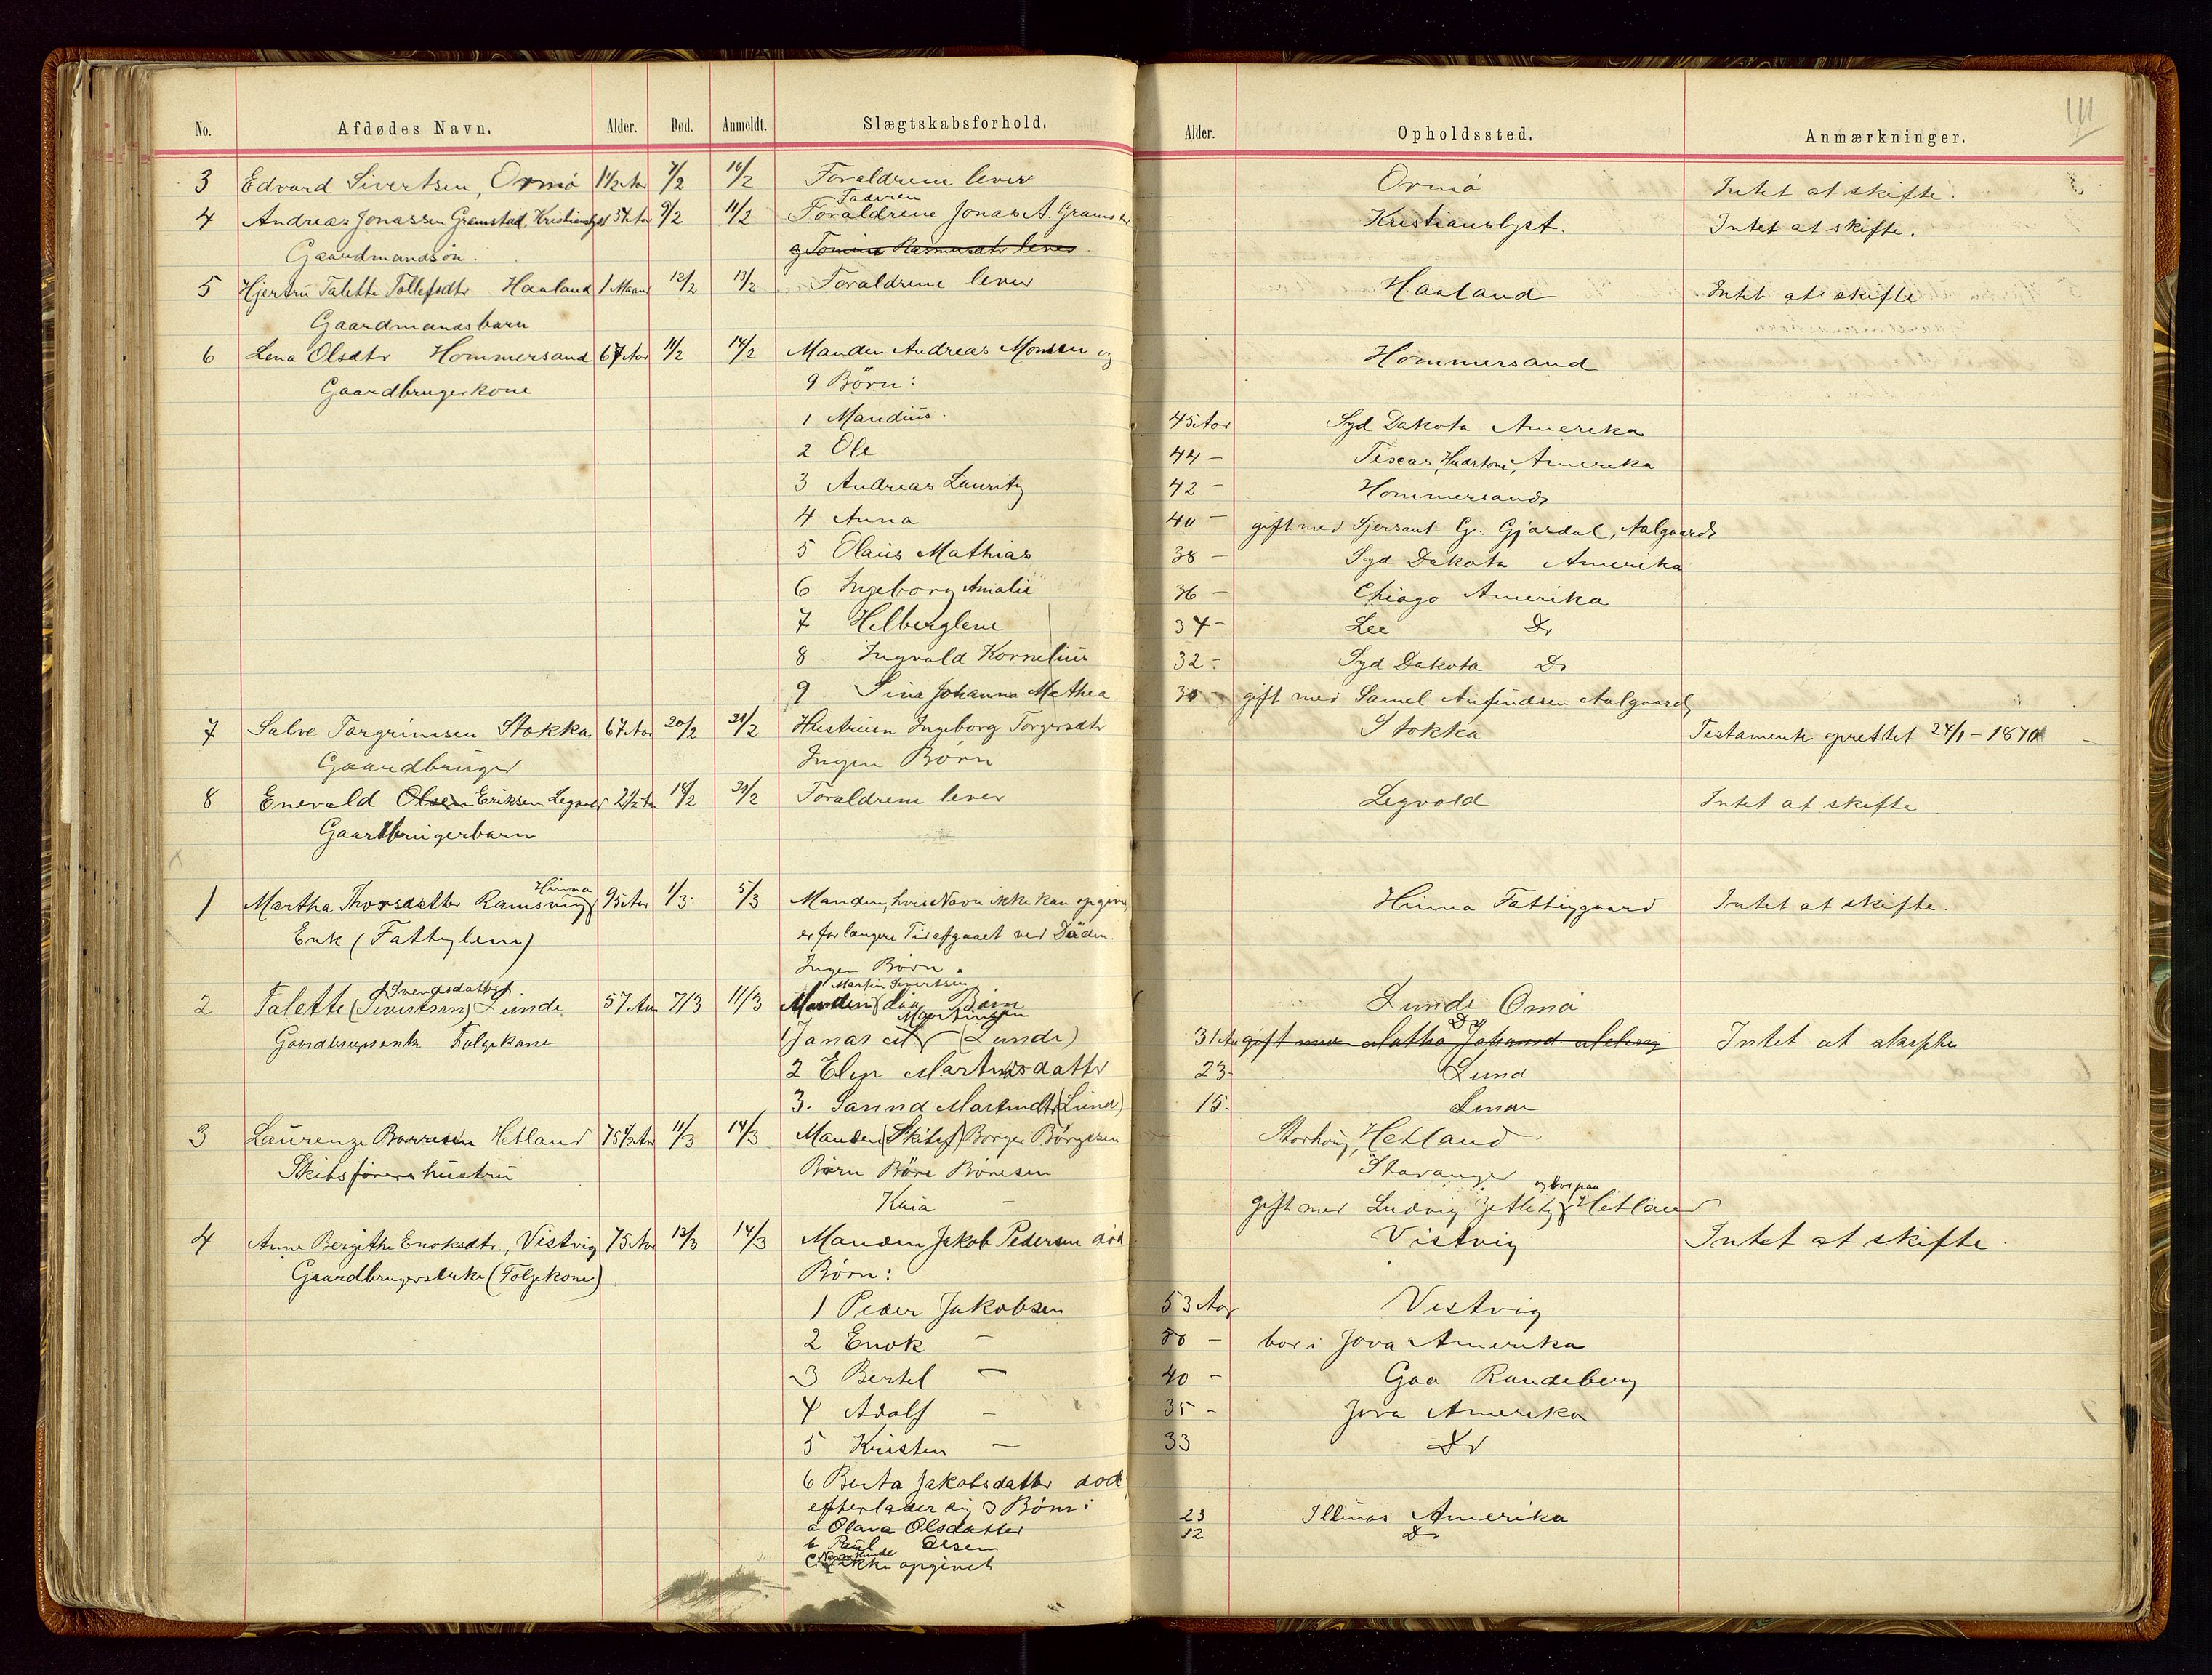 111
No. Afdødes Navn. Alder. Død. Anmeldt. Slægtskabsforhold. Alder. Opholdssted. Anmærkninger.
3 Edvard Sivertsen, Ormø 1½ Aar 7/2 10/2 Foraldrene lever Ormø Intet at skifte.
Faderen
4 Andreas Jonassen Gramstad, Kristianslyst 37 Aar 9/2 11/2 Foraldrene Jonas A. Gramstad Kristianslyst. Intet at skifte.
Gaardmandsøn. og Tomine Rasmusdtr lever
5 Hjertru Talette Tollefsdtr Haaland 1 Maaned 12/2 13/2 Foraldrene lever Haaland Intet at skifte
Gaardmandsbarn
6 Lena Olsdtr Hommersand 67 Aar 11/2 14/2 Manden Andreas Monsen og Hommersand
Gaardbrugerkone 9 Börn:
1 Mandius. 45 Aar Syd Dakota Amerika
2 Ole 44 - Texas, Amerika
3 Andreas Lauritz 42 - Hommersand
4 Anna 40 - gift med Sjersant G. Gjøsdal, Aalgaard
5 Olaus Mathias 38 - Syd Dakota Amerika
6 Ingeborg Amalie 36 - Chiago Amerika
7 Helberglene 34 - Lee Do
8 Ingvald Kornelius 32 - Syd Dakota Do
9 Sina Johanna Mathea 30 - gift med Samel Anfindsen Aalgaard
7 Salve Torgrimsen Stokka 67 Aar 20/2 21/2 Hustruen Ingeborg Torgersdtr Stokka Testamente oprettet 24/1 - 1870
Gaardbruger Ingen Børn
8 Enevald Olsen Eriksen Legvold 2½ Aar 18/2 21/2 Foraldrene lever Legvold Intet at skifte
Gaardbrugerbarn
Hinna
1 Martha Thorsdatter Ramsvig 95 Aar 1/3 5/3 Manden, hvis Navn ikke kan opgives Hinna Fattiggaard Intet at skifte.
Enk (Fattiglem) er for længere Tid afgaaet ved Døden.
Ingen Børn.
Svendsdatter Martin Sivertsen
2 Talette (Sivertsen) Lunde 57 Aar 7/3 11/3 Manden død Børn Lunde Omø
Martinsen Do
Gaardbrugerenk Folgekone 1 Jonas (Lunde) 31 Aar gift med Jahansd Intet at skifte
2 Elen Martinsdatter 23 - Lund
3. Sanna Martindtr (Lund) 15 - Lunde
3 Laurenze Borresen Hetland 75½ Aar 11/3 14/3 Manden (Skibsf) Borger Börgesen Storhaug, Hetland
Skibsførers hustru Børn Böre Böresen Stavanger
og bor paa
Kaia - gift med Ludvig Zetlitz Hetland
4 Anne Bergithe Enoksdtr., Vistvig 75 Aar 13/3 14/3 Manden Jakob Pedersen død Vistvig Intet at skifte.
Gaardbrugerenke (Folgekone) Børn:
1 Peder Jakobsen 53 Aar Vistvig
2 Enok - bor i Jova Amerika
3 Bertel - 40 - Goa Randeberg
4 Adolf - 35 - Jova Amerika
5 Kristen - 33 Do
6 Berta Jakobsdatter død
efterlader sig 3 Børn:
a Olava Olsdatter 23 Illinois Amerika
b Paul Olsen 12 Do
c. Navn ikke opgivet